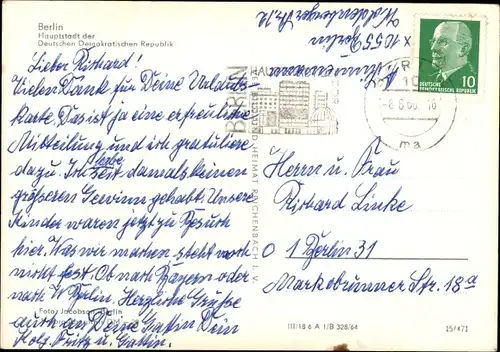 Berlin
Hauptstadt der
Deutschen Demokratischen Republik
Lieber Richard!
Vielen Dank für Deine Urlaubs-
karte. Das ist ja eine erfreuliche
Mitteilung und ich gratuliere
dazu. Ich habe seit damals keinen
größeren Gewinn gehabt. Unsere
Kinder waren jetzt zu Besuch
hier. Was wir machen steht noch
nicht fest. Ob nach Bayern oder
nach W Berlin. Herzliche Grüsse
auch an Deine Gattin Dein
Fritz u. Gattin.
Foto: Jacobson, Berlin
x 1055 Berlin
BERLIN
HAUP
DEUTSCHE
DEMOKRATISCHE REPUBLIK
10
ma
HEIMAT REICHENBACH I. V.
Herrn u. Frau
Richard Linke
1 Berlin 31
Markobrunner Str. 18a
III/18 6 A 1/B 328/64
15/471